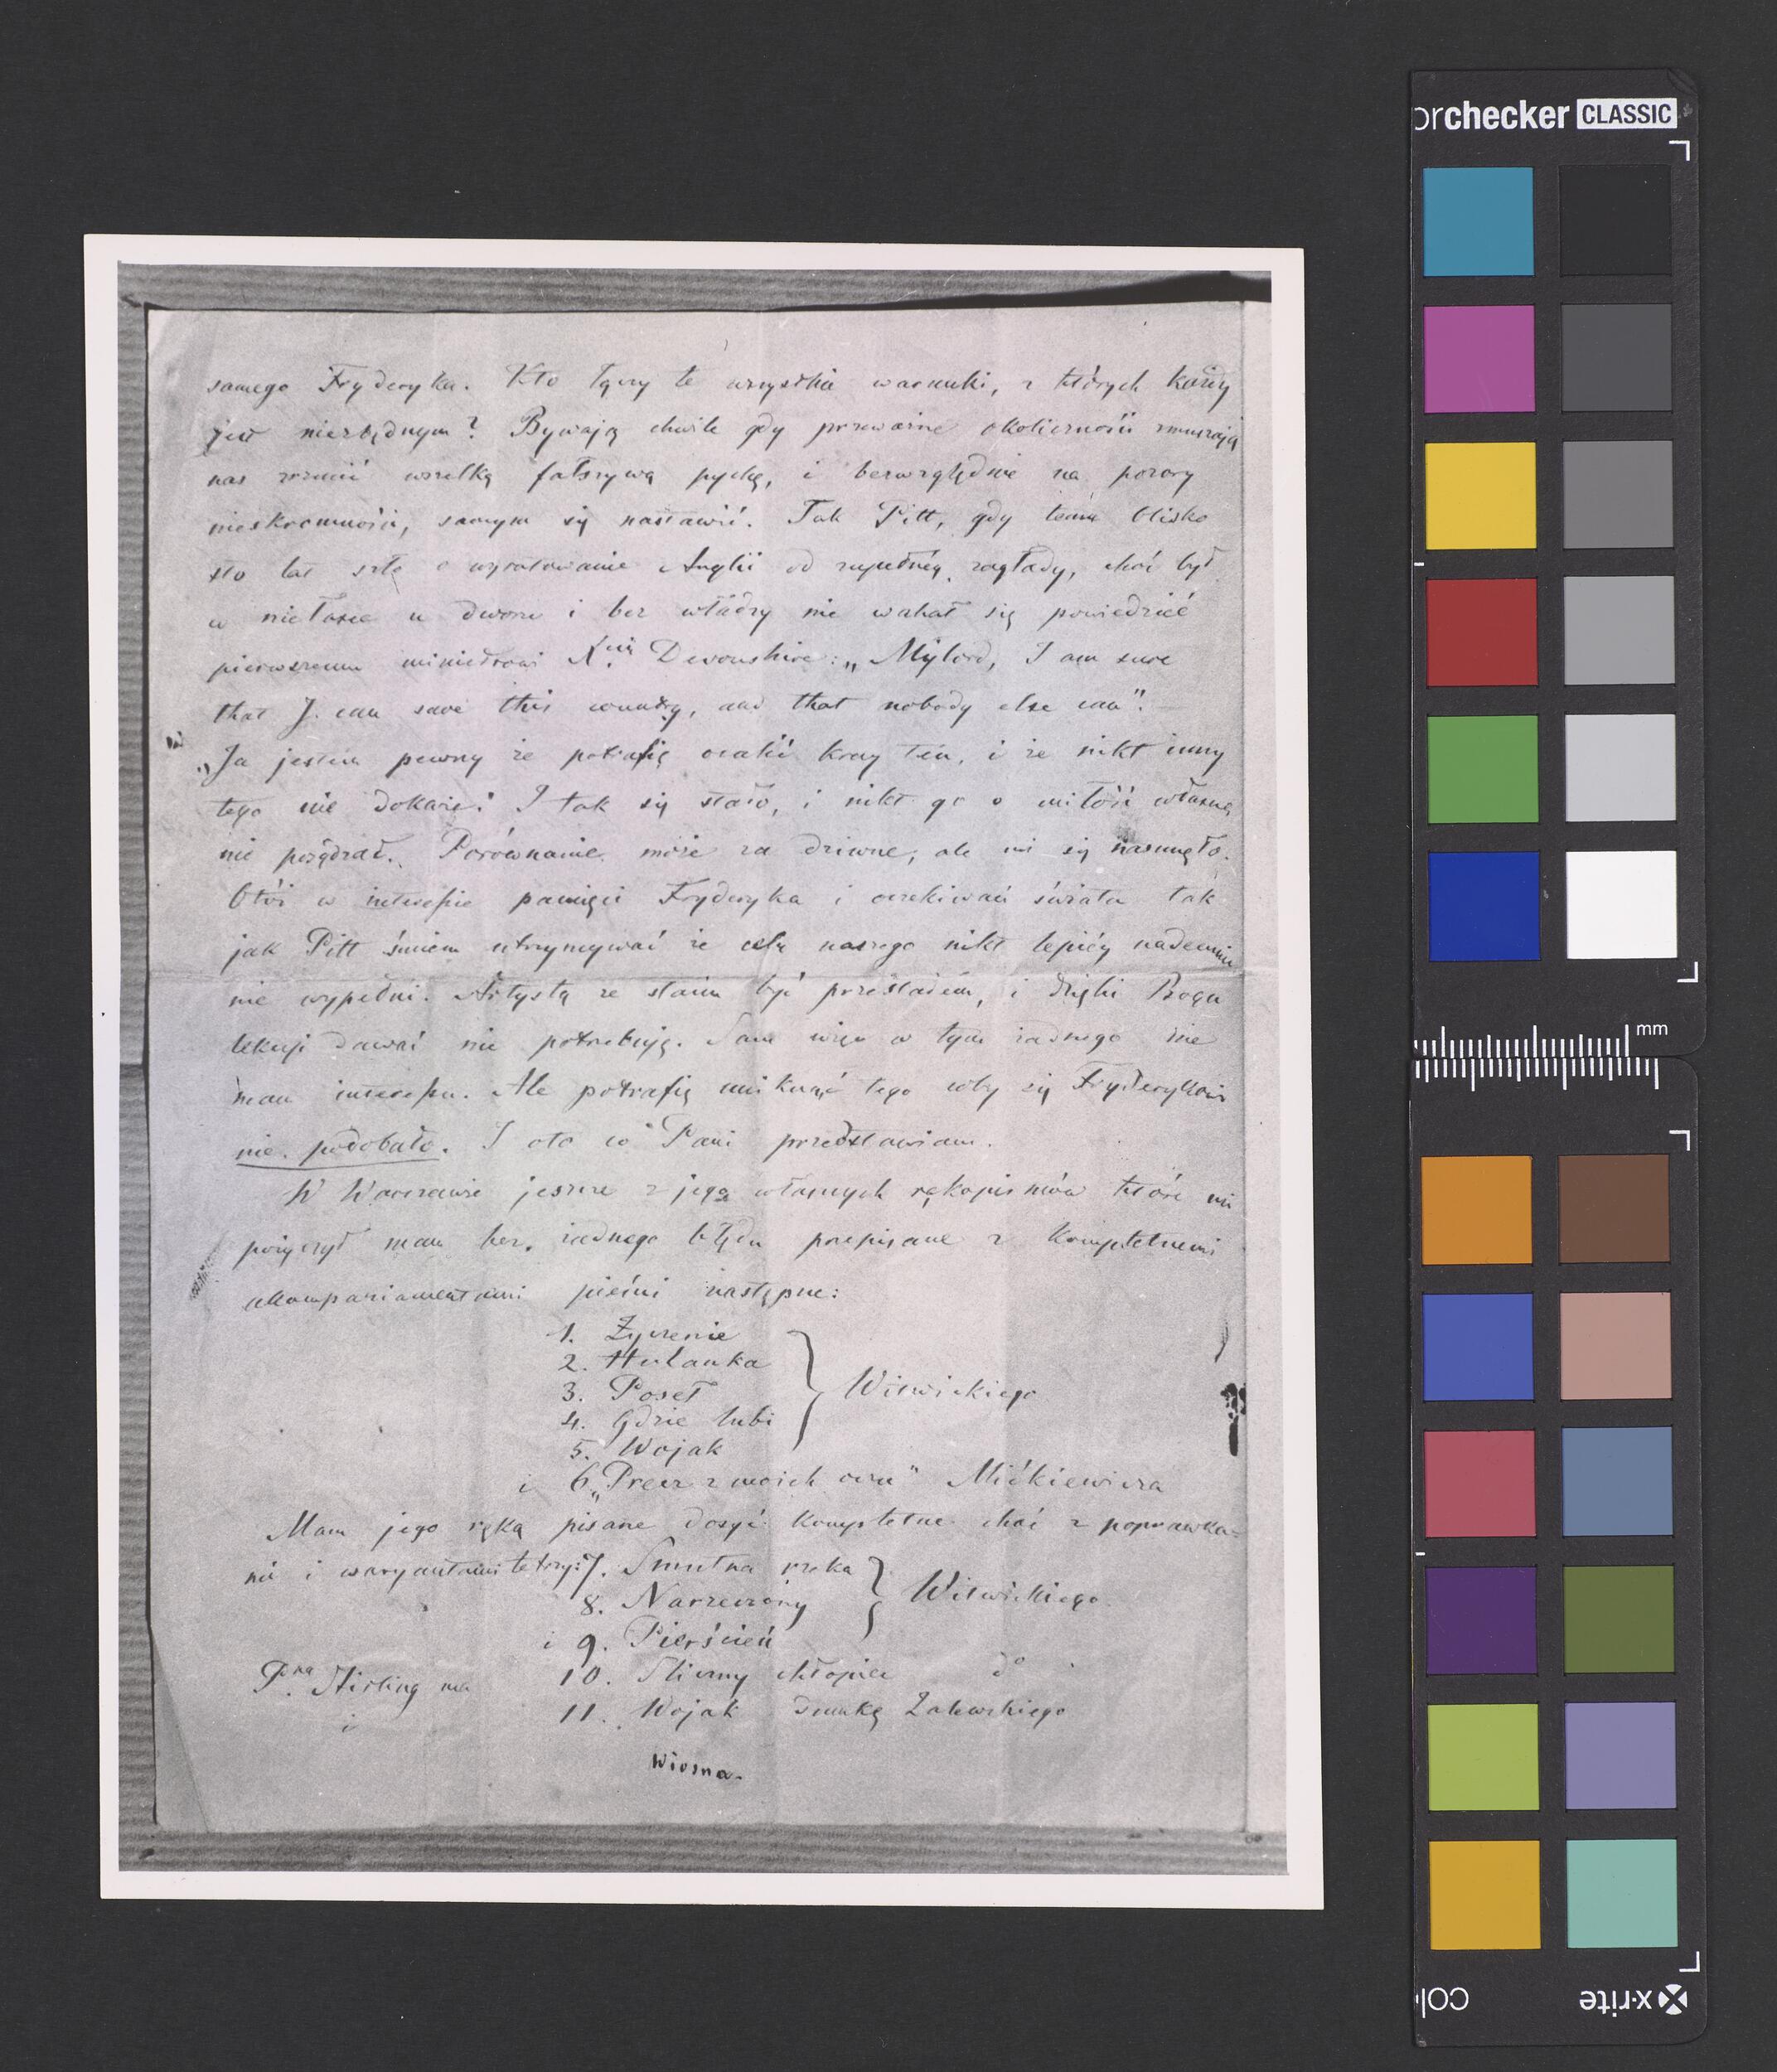 samego Fryderyka. Kto łączy te wszystkie warunki, z których każdy
jest niezbędnym? Bywają chwile gdy przeważne okoliczności zmuszają
nas rzucić wszelką fałszywą pychę, i bezwzględnie na pozory
nieskromności, samym się nastawić. Tak Pitt, gdy temu blisko
sto lat szło o wyratowanie Anglii od zupełnéj zagłady, choć był
w niełasce u dworu i bez władzy nie wahał się powiedzieć
pierwszemu ministrowi Devonshire: „Mylord, I am sure
that I can save this country, and that nobody else can".
„Ja jestem pewny że potrafię ocalić kray ten, i że nikt inny
tego nie dokaże." I tak się stało, i nikt go o miłość własną
nie posądzał. Porównanie może za dziwne, ale mi się nasunęło.
Otóż w interesie pamięci Fryderyka i oczekiwań świata tak
jak Pitt śmiem utrzymywać że celu naszego nikt lepiéy nademnie
nie wypełni. Artystą ze stanu być przestałem, i dzięki Bogu
lekcji dawać nie potrzebuję. Sam więc w tym żadnego nie
mam interesu. Ale potrafię uniknąć tego coby się Fryderykowi
nie podobało. I oto co Pani przedstawiam.
W Warszawie jeszcze z jego własnych rękopismów które mi
pożyczył mam bez żadnego błędu przepisane z kompletnemi
akompaniamentami pieśni następne:
1. Życzenie
2. Hulanka
3. Poseł
4. Gdzie lubi
5. Wojak
Witwickiego
i 6. „Precz z moich oczu" Mickiewicza
Mam jego ręką pisane dosyć kompletne choć z poprawka=
mi i waryantami te trzy: 7. Smutna rzeka
8. Narzeczony
i 9. Pierścień
Witwickiego.
Pna Stirling ma 10. Śliczny chłopiec do
i 11. Wojak dumkę Zaleskiego
Wiosna.
orchecker CLASSIC
mm
x·rite
col